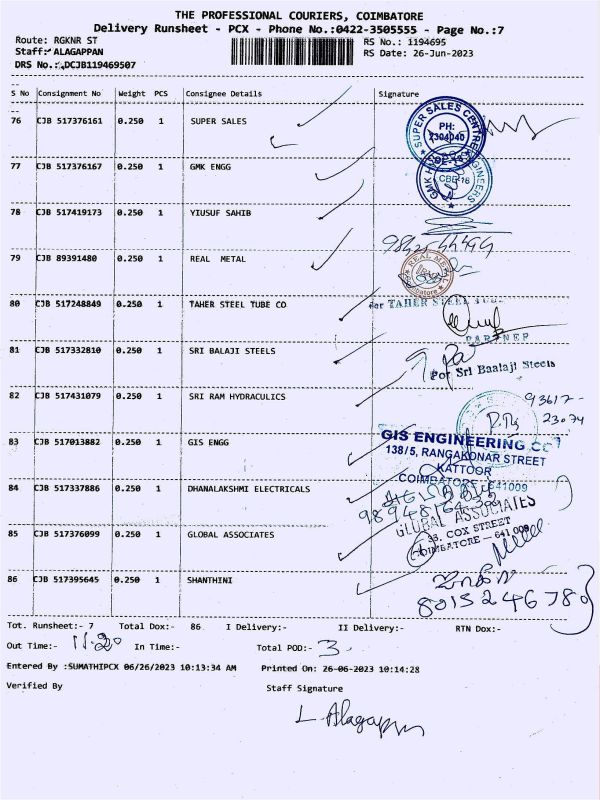 THE PROFESSIONAL COURIERS, COIMBATORE
Delivery Runsheet - PCX - Phone No.:0422-3505555 - Page No.:7
Route: RGKNR ST RS No.: 1194695
Staff: ALAGAPPAN RS Date: 26-Jun-2023
DRS No.: DCJB119469507
S No Consignment No Weight PCS Consignee Details Signature
76 CJB 517376161 0.250 1 SUPER SALES
SUPER SALES CENTRE
PH:
2304040
77 CJB 517376167 0.250 1 GMK ENGG
CBE-18
78 CJB 517419173 0.250 1 YIUSUF SAHIB
79 CJB 89391480 0.250 1 REAL METAL
REAL METAL
80 CJB 517248849 0.250 1 TAHER STEEL TUBE CO
for TAHER STEEL TUBE
PARTNER
81 CJB 517332810 0.250 1 SRI BALAJI STEELS
For Sri Baalaji Steels
82 CJB 517431079 0.250 1 SRI RAM HYDRAULICS
93617-
23074
83 CJB 517013882 0.250 1 GIS ENGG
GIS ENGINEERING CO
138/5, RANGAKONAR STREET
KATTOOR
COIMBATORE - 641009
84 CJB 517337886 0.250 1 DHANALAKSHMI ELECTRICALS
85 CJB 517376099 0.250 1 GLOBAL ASSOCIATES
GLOBAL ASSOCIATES
33, COX STREET
COIMBATORE - 641 009
86 CJB 517395645 0.250 1 SHANTHINI
8015246780
Tot. Runsheet:- 7 Total Dox:- 86 I Delivery:- II Delivery:- RTN Dox:-
Out Time:- 11.20 In Time:- Total POD:- 3
Entered By :SUMATHIPCX 06/26/2023 10:13:34 AM Printed On: 26-06-2023 10:14:28
Verified By Staff Signature
L. Alagappan